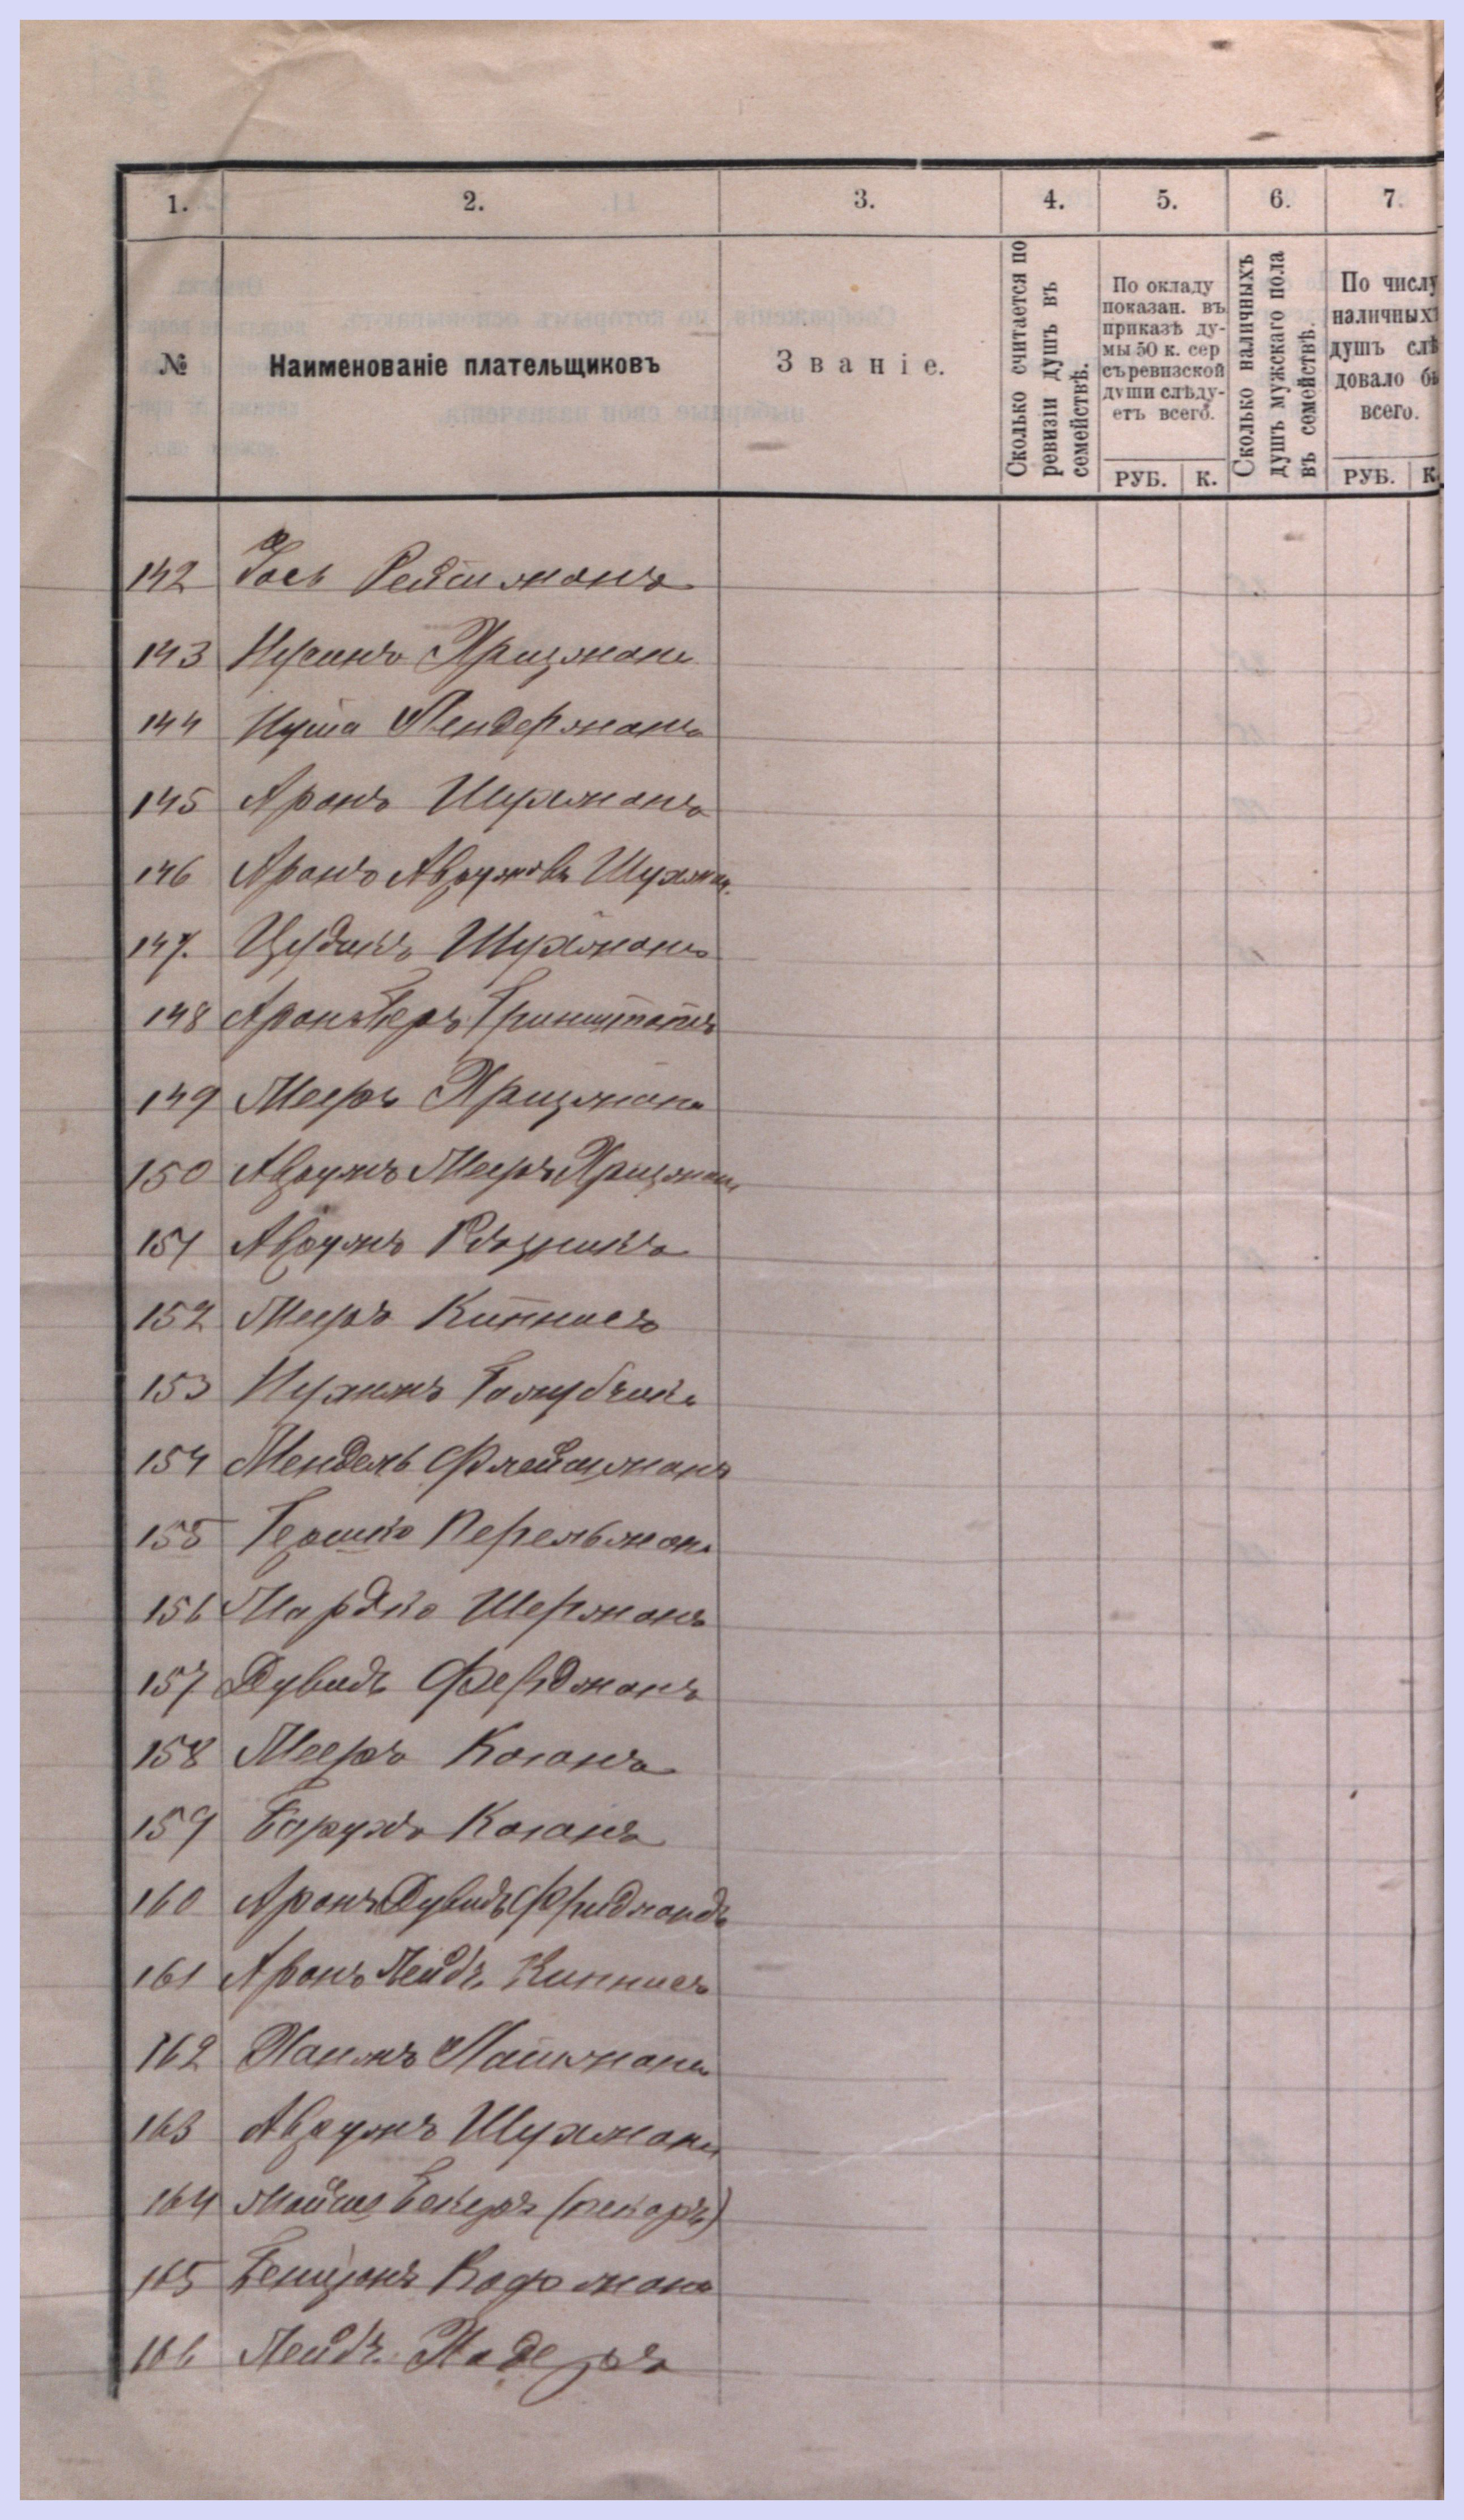 1. 2. 3. 4. 5. 6. 7.
№
Наименованіе плательщиковъ
Званіе.
Сколько считается по
ревизіи душъ въ
семействѣ.
По окладу
показан. въ
приказѣ ду-
мы 50 к. сер
съ ревизской
души слѣду-
етъ всего.
РУБ. К.
Сколько наличныхъ
душъ мужскаго пола
въ семействѣ.
По числу
наличныхъ
душъ слѣ
довало бы
всего.
РУБ. К.
142 Іось Рейтманъ
143 Нусинъ Хрицманъ
144 Нута Лендерманъ
145 Аронъ Шухманъ
146 Аронъ Аврумовъ Шухман.
147. Цудикъ Шухманъ
148 Аронъ Беръ
149 Мееръ Хрицманъ
150 Аврумъ Мееръ Хрицманъ
151 Аврумъ Рѣзникъ
152 Мееръ Кипнисъ
153 Нухимъ Голубчикъ
154 Мендель Флейшманъ
155 Гершко Перельманъ
156 Мордко Шерманъ
157 Дувидъ Фельдманъ
158 Мееръ Коганъ
159 Борухъ Коганъ
160 Аронъ Дувидъ
161 Аронъ Лейбъ Кипнисъ
162 Хаимъ
163 Аврумъ Шухманъ
164 Мойше Бекеръ (пекарь)
165 Бенционъ Кофманъ
166 Лейбъ